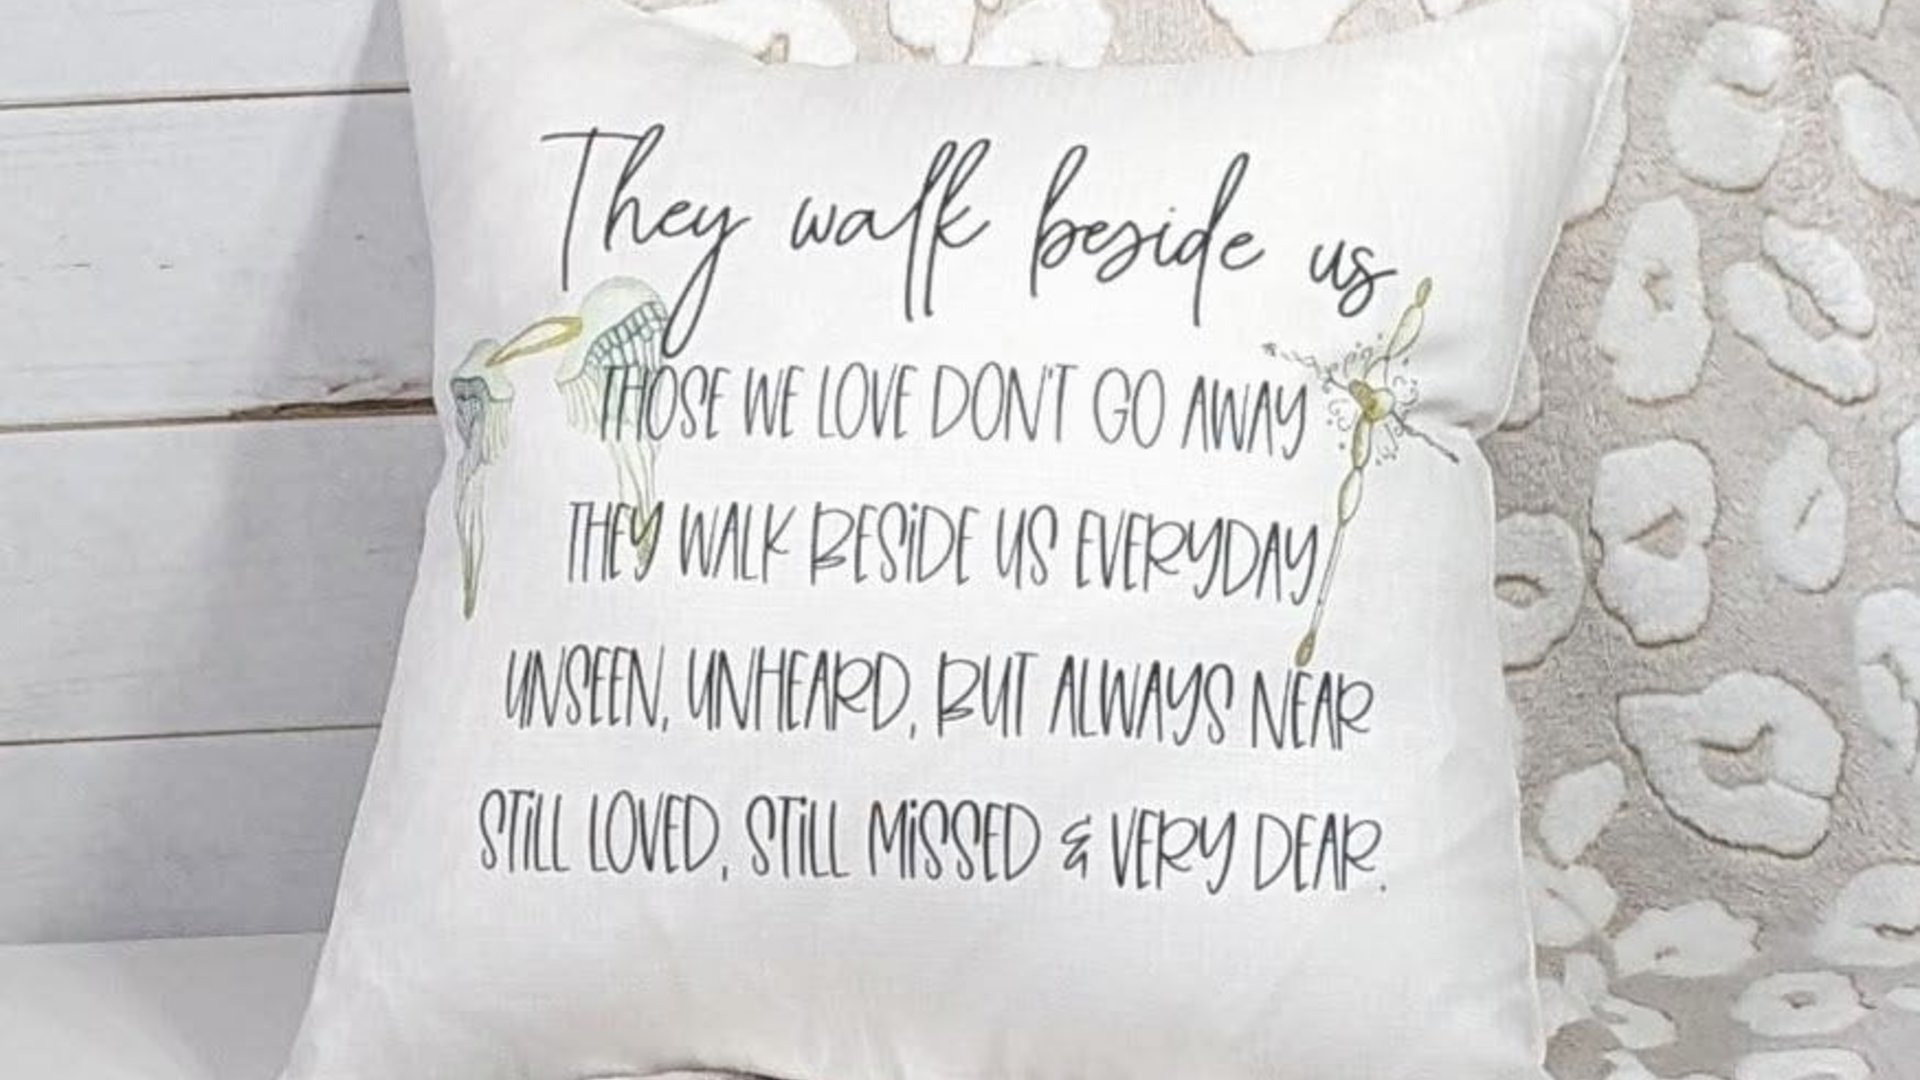 They walk beside us
THOSE WE LOVE DON'T GO AWAY
THEY WALK BESIDE US EVERYDAY
UNSEEN, UNHEARD, BUT ALWAYS NEAR
STILL LOVED, STILL MISSED & VERY DEAR.